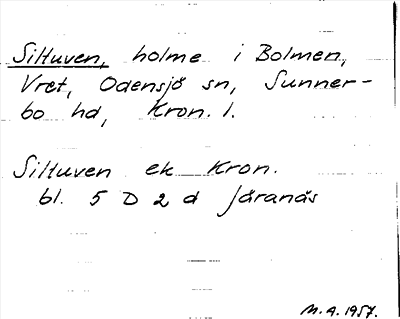 Sittuven, holme i Bolmen,
Vret, Odensjö sn, Sunner-
bo hd, Kron. l.
Sittuven ek Kron.
bl. 5 D 2 d Järanäs
M.A. 1957.